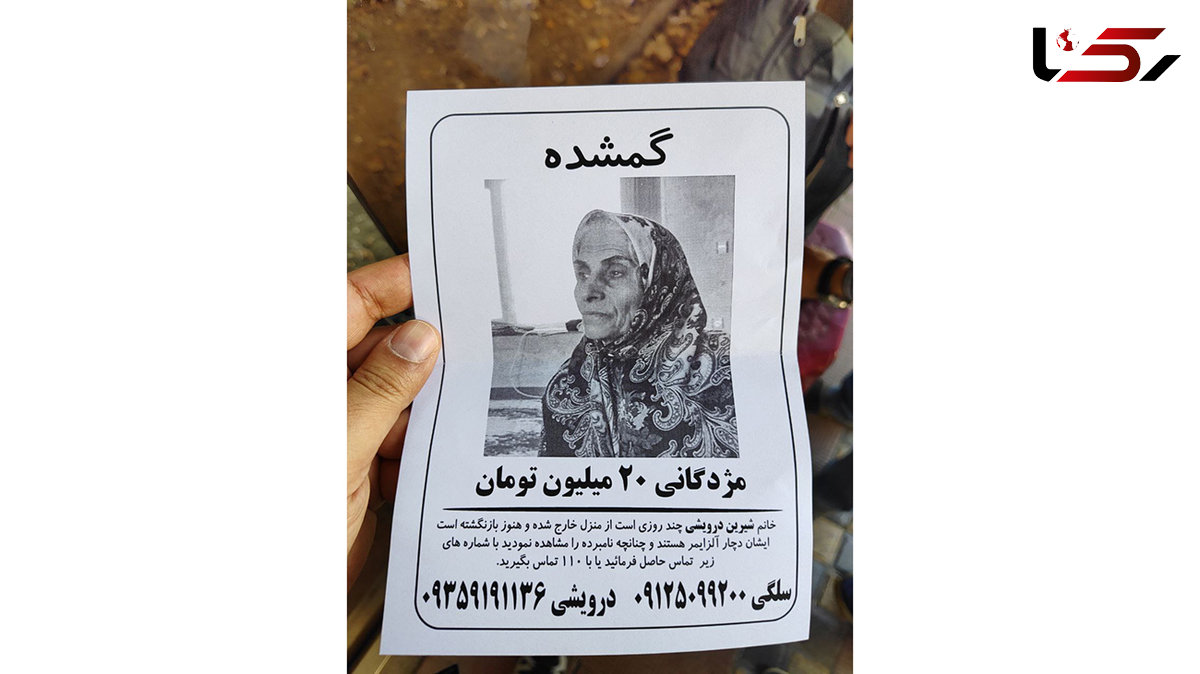 رکنا
گمشده
مژدگانی ۲۰ میلیون تومان
خانم شیرین درویشی چند روزی است از منزل خارج شده و هنوز بازنگشته است
ایشان دچار آلزایمر هستند و چنانچه نامبرده را مشاهده نمودید با شماره های
زیر تماس حاصل فرمائید یا با ۱۱۰ تماس بگیرید.
سلگی ۰۹۱۲۵۰۹۹۲۰۰ درویشی ۰۹۳۵۹۱۹۱۱۳۶